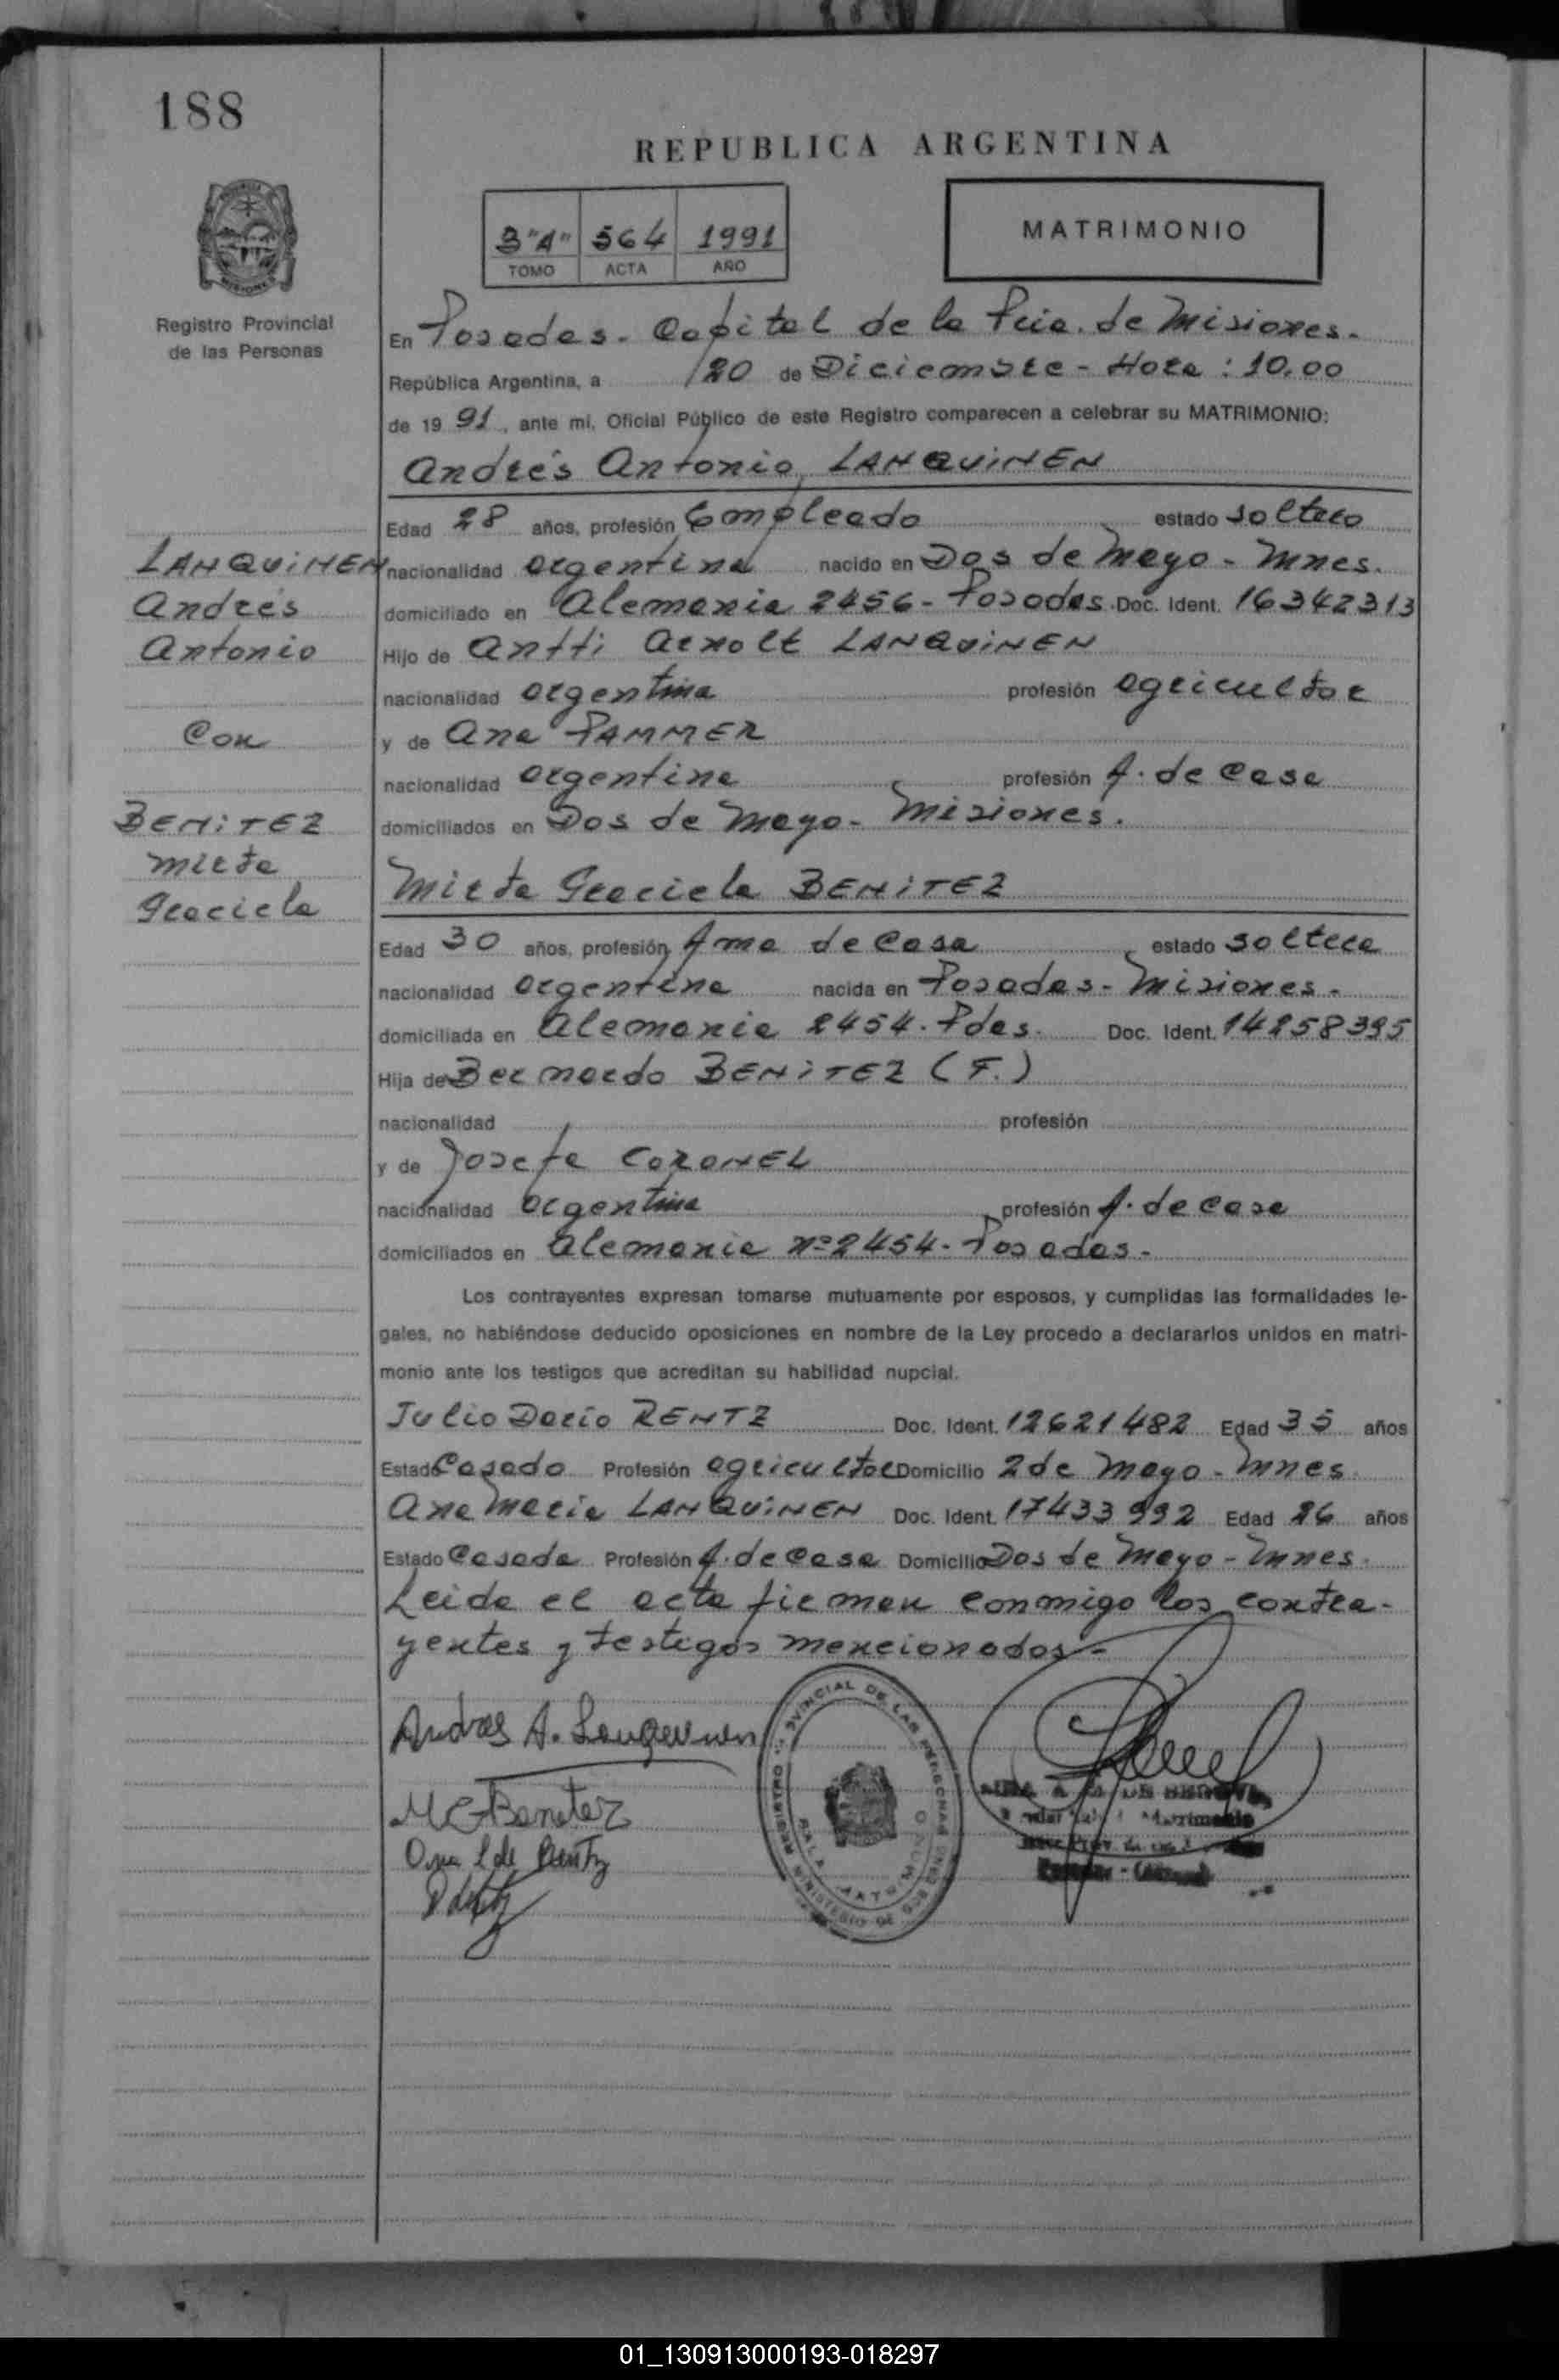 188
REPUBLICA ARGENTINA
3"A" 564 1991
TOMO ACTA AÑO
MATRIMONIO
Registro Provincial
de las Personas
En Posadas - Capital de la Pcia. de Misiones.
República Argentina, a 20 de Diciembre - Hora: 10.00
de 19 91, ante mi, Oficial Público de este Registro comparecen a celebrar su MATRIMONIO:
Andrés Antonio LANQUINEN
Edad 28 años, profesión Empleado estado soltero
LANQUINEN
Andrés
Antonio
Con
BENITEZ
Mirta
Graciela
nacionalidad argentina nacido en Dos de Mayo - Mnes.
domiciliado en Alemania 2456 - Posadas Doc. Ident. 16342313
Hijo de Antti Arnolt LANQUINEN
nacionalidad argentina profesión agricultor
y de Ana PAMMER
nacionalidad argentina profesión A. de Casa
domiciliados en Dos de Mayo - Misiones.
Mirta Graciela BENITEZ
Edad 30 años, profesión Ama de Casa estado soltera
nacionalidad argentina nacida en Posadas - Misiones -
domiciliada en Alemania 2454. Pdas. Doc. Ident. 14258395
Hija de Bernardo BENITEZ (F.)
nacionalidad profesión
y de Josefa CORONEL
nacionalidad argentina profesión A. de Casa
domiciliados en Alemania Nº 2454 - Posadas -
Los contrayentes expresan tomarse mutuamente por esposos, y cumplidas las formalidades le-
gales, no habiéndose deducido oposiciones en nombre de la Ley procedo a declararlos unidos en matri-
monio ante los testigos que acreditan su habilidad nupcial.
Julio Dario RENTZ Doc. Ident. 12621482 Edad 35 años
Estado Casado Profesión agricultor Domicilio 2 de Mayo - Mnes
Ana Maria LANQUINEN Doc. Ident. 17433992 Edad 26 años
Estado Casada Profesión A. de Casa Domicilio Dos de Mayo - Mnes.
Leida el acta firman conmigo los contra-
yentes y testigos mencionados -
Andres A. Lanquinen
M G Benitez
Ana L de Rentz
01_130913000193-018297